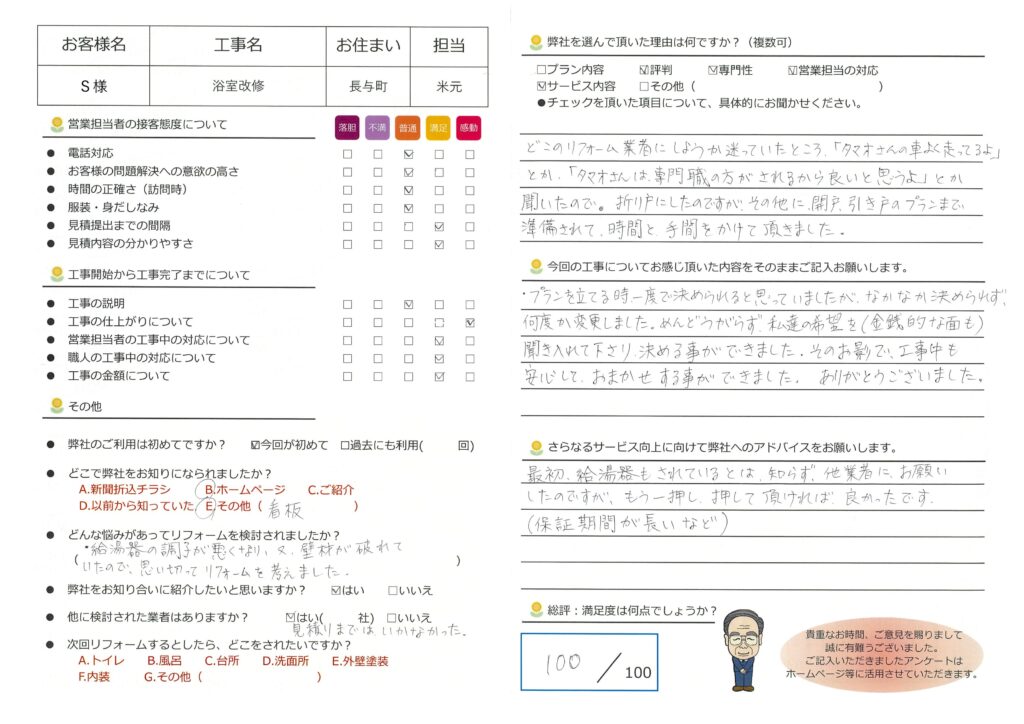 お客様名 工事名 お住まい 担当
S様 浴室改修 長与町 米元
営業担当者の接客態度について 落胆 不満 普通 満足 感動
● 電話対応 □ □ ☑ □ □
● お客様の問題解決への意欲の高さ □ □ ☑ □ □
● 時間の正確さ（訪問時） □ □ ☑ □ □
● 服装・身だしなみ □ □ ☑ □ □
● 見積提出までの間隔 □ □ □ ☑ □
● 見積内容の分かりやすさ □ □ □ ☑ □
工事開始から工事完了までについて
● 工事の説明 □ □ ☑ □ □
● 工事の仕上がりについて □ □ □ □ ☑
● 営業担当者の工事中の対応について □ □ □ ☑ □
● 職人の工事中の対応について □ □ □ ☑ □
● 工事の金額について □ □ □ ☑ □
その他
● 弊社のご利用は初めてですか？ ☑今回が初めて □過去にも利用( 回)
● どこで弊社をお知りになられましたか？
A.新聞折込チラシ B.ホームページ C.ご紹介
D.以前から知っていた E.その他（ 看板 ）
● どんな悩みがあってリフォームを検討されましたか？
（・給湯器の調子が悪くなり、又、壁材が破れて
いたので、思い切ってリフォームを考えました. ）
● 弊社をお知り合いに紹介したいと思いますか？ ☑はい □いいえ
● 他に検討された業者はありますか？ ☑はい( 社) □いいえ
見積りまではいかなかった.
● 次回リフォームするとしたら、どこをされたいですか？
A.トイレ B.風呂 C.台所 D.洗面所 E.外壁塗装
F.内装 G.その他（ ）
弊社を選んで頂いた理由は何ですか？（複数可）
□プラン内容 ☑評判 ☑専門性 ☑営業担当の対応
☑サービス内容 □その他（ ）
●チェックを頂いた項目について、具体的にお聞かせください。
どこのリフォーム業者にしようか迷っていたところ、「タマオさんの車よく走ってるよ」
とか、「タマオさんは、専門職の方がされるから良いと思うよ」とか
聞いたので。折り戸にしたのですが、その他に、開戸、引き戸のプランまで
準備されて、時間と、手間をかけて頂きました.
今回の工事についてお感じ頂いた内容をそのままご記入お願いします。
・プランを立てる時、一度で決められると思っていましたが、なかなか決められず、
何度か変更しました。めんどうがらず、私達の希望を(金銭的な面も)
聞き入れて下さり、決める事ができました. そのお影で、工事中も
安心して、おまかせする事ができました. ありがとうございました。
さらなるサービス向上に向けて弊社へのアドバイスをお願いします。
最初、給湯器もされているとは、知らず、他業者に、お願い
したのですが、もう一押し、押して頂ければ、良かったです.
(保証期間が長いなど)
総評：満足度は何点でしょうか？
100／100
貴重なお時間、ご意見を賜りまして
誠に有難うございました。
ご記入いただきましたアンケートは
ホームページ等に活用させていただきます。